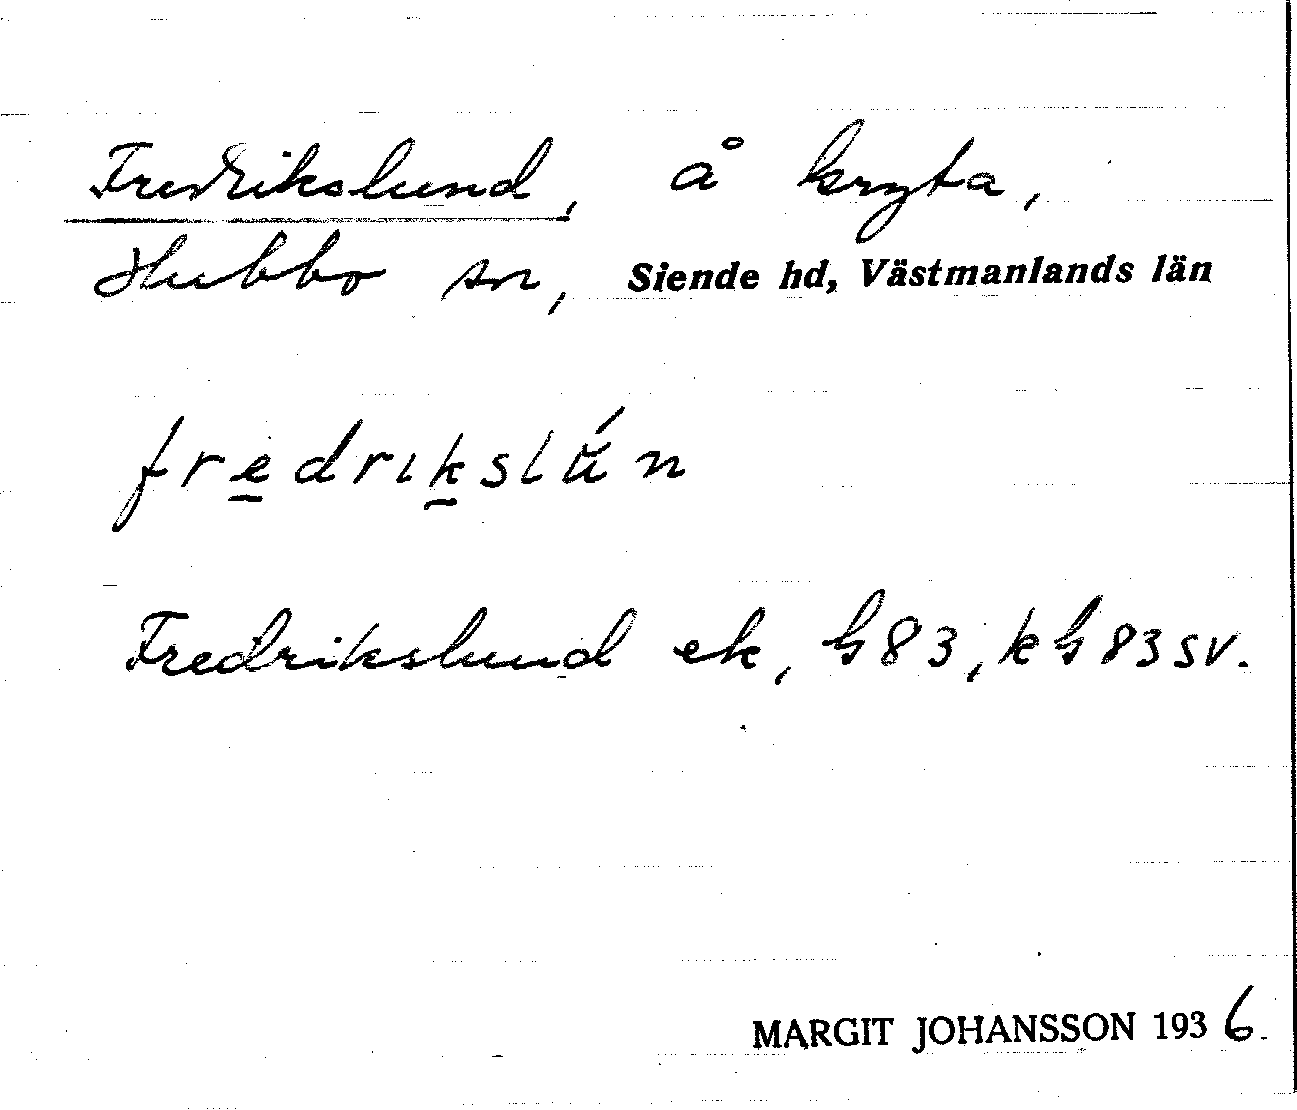 Fredrikslund, å kryta,
Hubbo sn, Siende hd, Västmanlands län
fredrikslún
Fredrikslund ek, G83, kG83SV.
MARGIT JOHANSSON 1936.